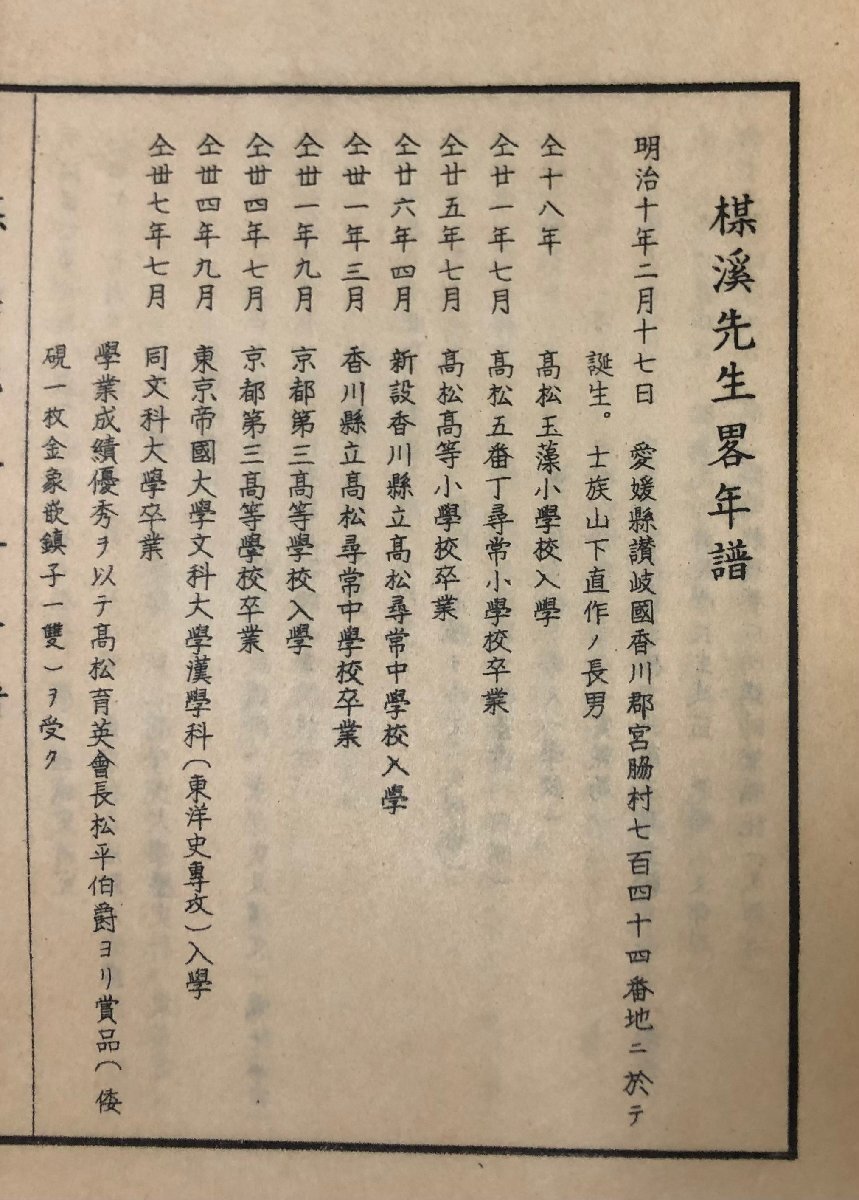 楳溪先生畧年譜
明治十年二月十七日 愛媛縣讃岐國香川郡宮脇村七百四十四番地ニ於テ
誕生。士族山下直作ノ長男
仝十八年 髙松玉藻小學校入學
仝廿一年七月 髙松五番丁尋常小學校卒業
仝廿五年七月 髙松髙等小學校卒業
仝廿六年四月 新設香川縣立髙松尋常中學校入學
仝丗一年三月 香川縣立髙松尋常中學校卒業
仝丗一年九月 京都第三髙等學校入學
仝丗四年七月 京都第三髙等學校卒業
仝丗四年九月 東京帝國大學文科大學漢學科(東洋史專攻)入學
仝丗七年七月 同文科大學卒業
學業成績優秀ヲ以テ髙松育英會長松平伯爵ヨリ賞品(倭
硯一枚金象嵌鎮子一雙)ヲ受ク